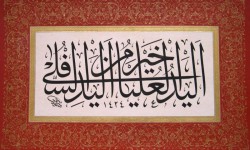 اليد العليا خير من اليد السفلى
١٤٢٤